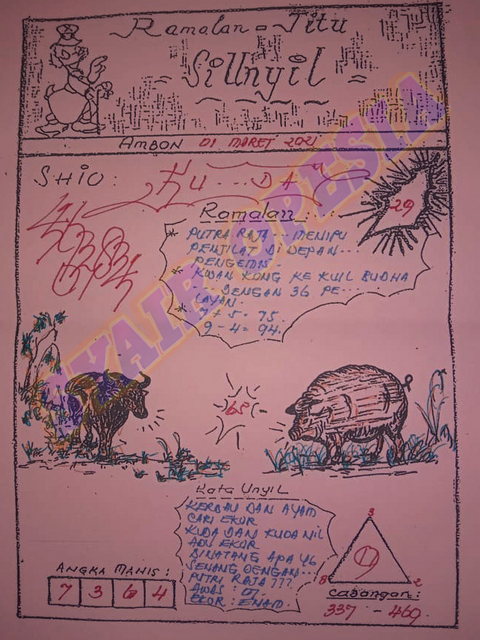 Ramalan = Jitu
Si Unyil
AMBON 01 MARET 2021
SHIO : KU...DA
29
Ramalan
* PUTRA RAJA... MENIPU
PENJILAT DI DEPAN...
PENGEMIS..
* KWAN KONG KE KUIL BUDHA
... DENGAN 36 PE...
LAYAN.
* 7 + 5 = 75.
9 - 4 = 94.
65
Kata Unyil
KERBAU DAN AYAM
CARI EKOR
KUDA DAN KUDA NIL
ADU EKOR
BINATANG APA YG
SENANG DENGAN...
PUTRI RAJA ???
AWAS : 07.
EKOR : ENAM.
ANGKA MANIS :
7 3 6 4
3
8 2
CABANGAN :
337 - 469.